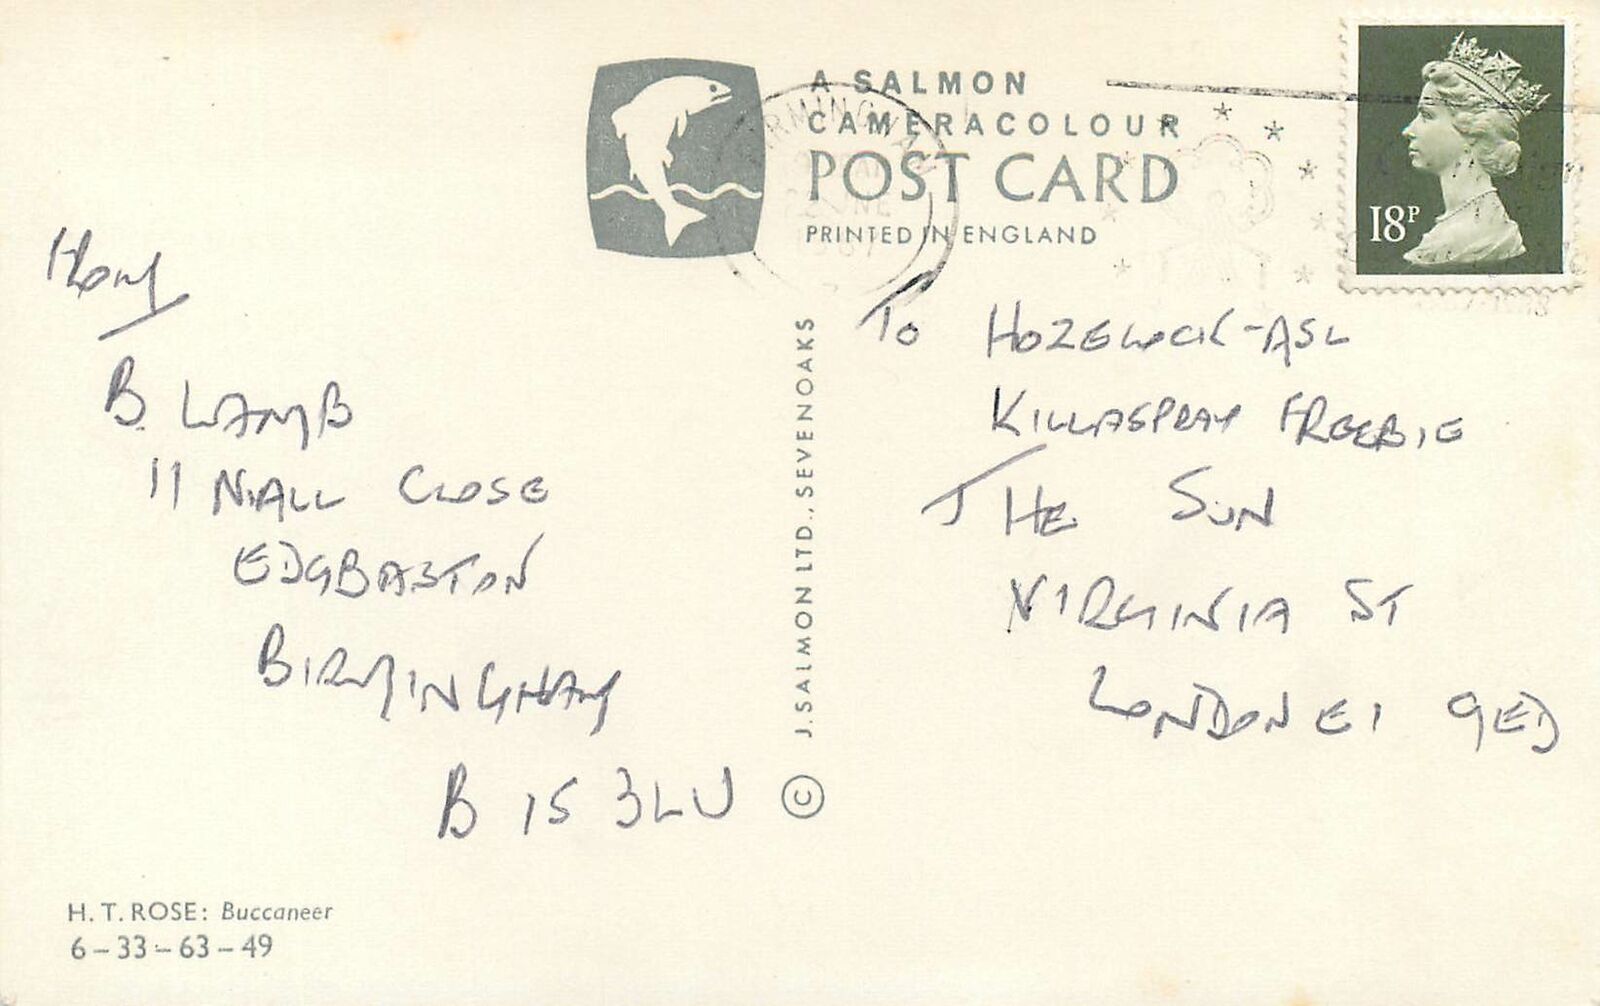 A SALMON
CAMERACOLOUR
POST CARD
PRINTED IN ENGLAND
BIRMINGHAM
18P
From
B. LAMB
11 NIALL CLOSE
EDGBASTON
BIRMINGHAM
B15 3LU
J. SALMON LTD., SEVENOAKS ©
To HOZELOCK-ASL
KILLASPRAY FREEBIE
THE SUN
VIRGINIA ST
LONDON E1 9ED
H. T. ROSE: Buccaneer
6-33-63-49